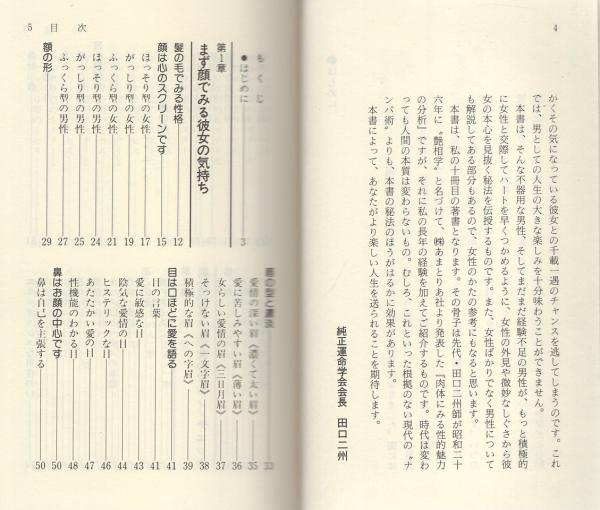 4
かくその気になっている彼女との千載一遇のチャンスを逃してしまうのです。これ
では、男としての人生の大きな楽しみを十分味わうことができません。
本書は、そんな不器用な男性、そしてまだまだ経験不足の男性が、もっと積極的
に女性と交際してハートを早くつかめるように、女性の外見や微妙なしぐさから彼
女の本心を見抜く秘法を伝授するものです。また、女性ばかりでなく男性について
も解説してある部分もあるので、女性のかたの参考にもなると思います。
本書は、私の十冊目の著書となります。その骨子は先代・田口二州師が昭和二十
六年に〝艶相学〟と名づけて、㈱あまとりあ社より発表した『肉体にみる性的魅力
の分析』ですが、それに私の長年の経験を加えてご紹介するものです。時代は変わ
っても人間の本質は変わらないもの。むしろ、これといった根拠のない現代の〝ナ
ンパ術〟よりも、本書の秘法のほうがはるかに効果があります。
本書によって、あなたがより楽しい人生を送られることを期待します。
純正運命学会会長 田口二州
5 目次
もくじ
●はじめに 3
第1章
まず顔でみる彼女の気持ち
髪の毛でみる性格 12
顔は心のスクリーンです 15
ほっそり型の女性 17
がっしり型の女性 19
ふっくら型の女性 21
ほっそり型の男性 24
がっしり型の男性 25
ふっくら型の男性 27
額の形 29
眉の型と濃淡 33
愛情の深い眉《濃くて太い眉》 35
愛に苦しみやすい眉《薄い眉》 36
女らしい愛情の眉《三日月眉》 37
そっけない眉《一文字眉》 38
積極的な眉《への字眉》 39
目は口ほどに愛を語る 41
目の言葉 41
愛に敏感な目 43
陰気な愛情の目 44
ヒステリックな目 46
あたたかい愛の目 47
性機能のわかる目 48
鼻はお顔の中心です 50
鼻は自己を主張する 50